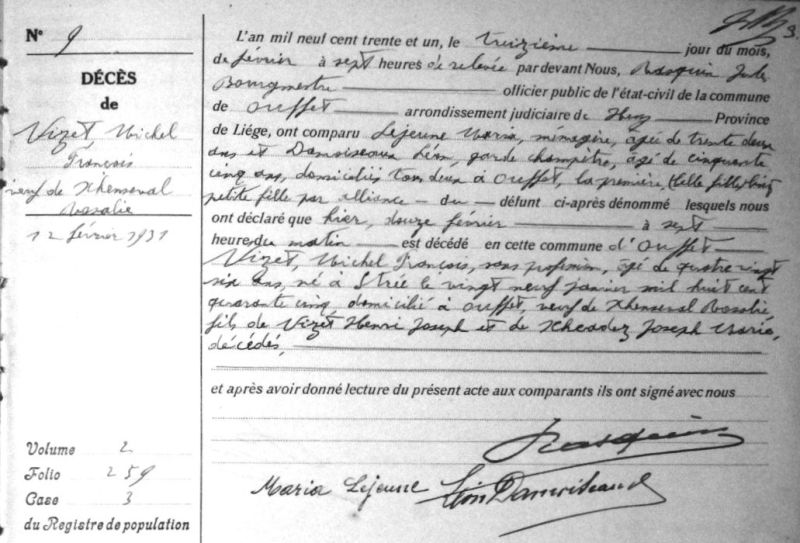 3.
N° 9
DÉCÈS
de
Vizet Michel
François
veuf de Xhenseval
Rosalie
12 février 1931
Volume 2
Folio 259
Case 3
du Registre de population
L'an mil neuf cent trente et un, le treizième jour du mois,
de février à sept heures de relevée par devant Nous, Rasquin Jules
Bourgmestre officier public de l'état-civil de la commune
de Ouffet arrondissement judiciaire de Huy Province
de Liége, ont comparu Lejeune Maria, ménagère, âgée de trente deux
ans et Damoiseaux Léon, garde champêtre, âgé de cinquante
cinq ans, domiciliés tous deux à Ouffet, la première,
petite fille par alliance - du - défunt ci-après dénommé lesquels nous
ont déclaré que hier, douze février à sept
heures du matin est décédé en cette commune d'Ouffet
Vizet, Michel François, sans profession, âgé de quatre vingt
six ans, né à Strée le vingt neuf janvier mil huit cent
quarante cinq, domicilié à Ouffet, veuf de Xhenseval Rosalie
fils de Vizet Henri Joseph et de Joseph Marie,
décédés,
et après avoir donné lecture du présent acte aux comparants ils ont signé avec nous
Rasquin
Maria Lejeune Léon Damoiseaux